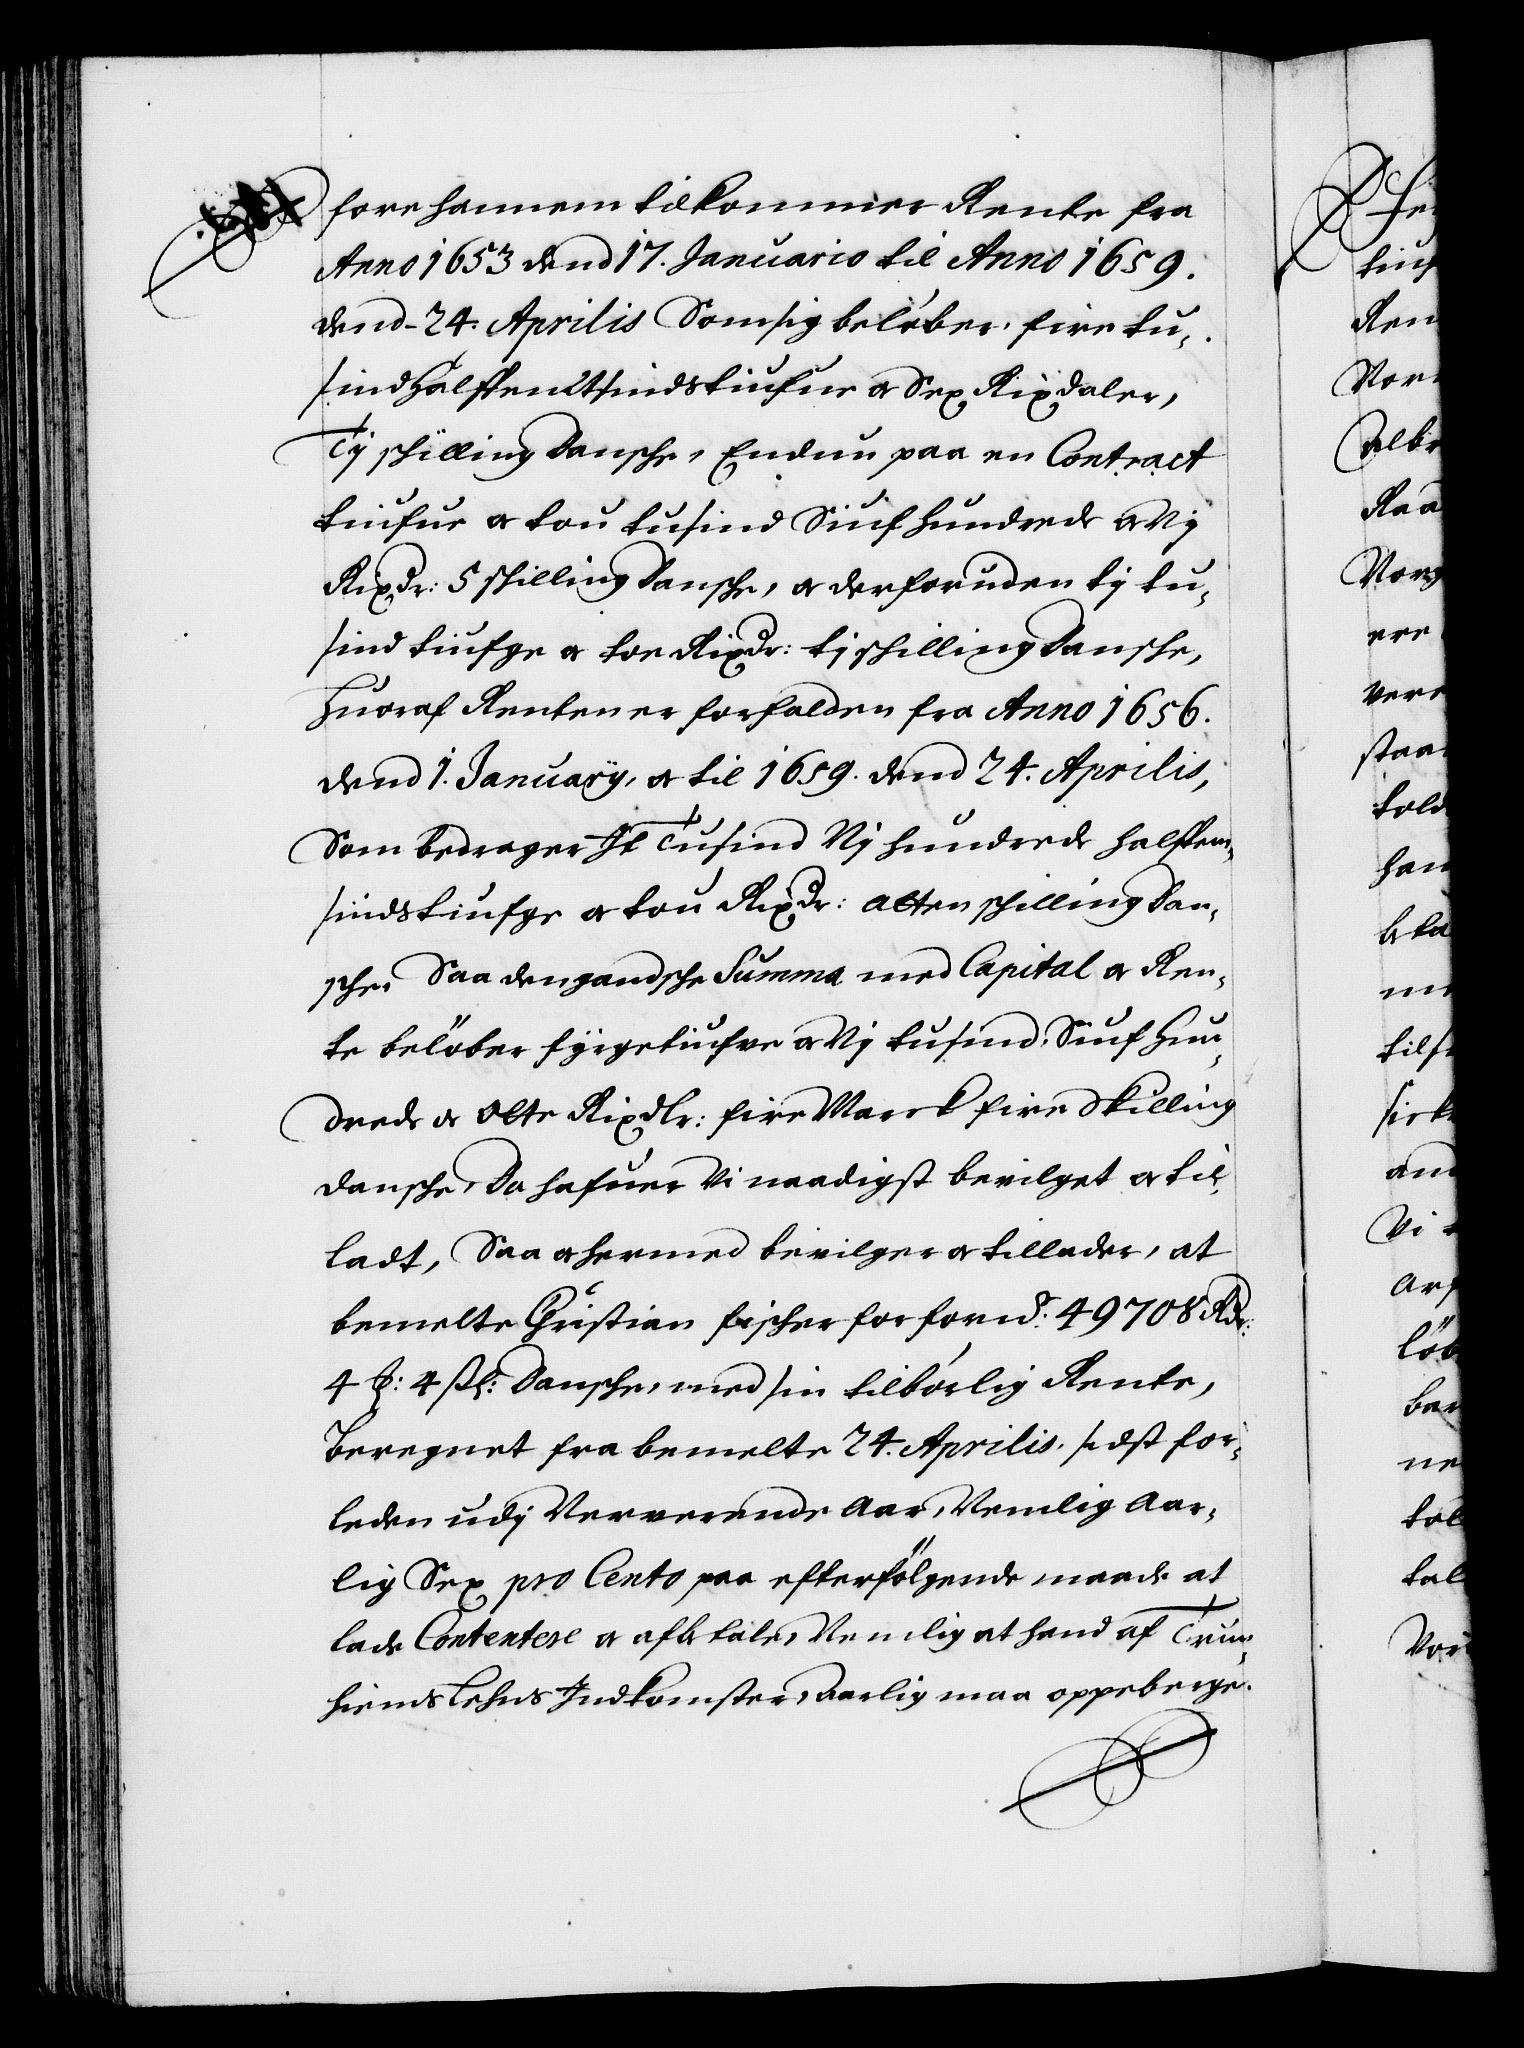 fore hannem tilkommer Rente fra
Anno 1653 dend 17. Januario til Anno 1659.
dend 24. Aprilis Som sig beløber, fire tu-
sind Halffemtesinds tiufue & Sex Rixdaler,
Tÿ skilling Danske, Endnu paa en Contract
tiufue & tou tusind Siuf hundrede & Nÿ
Rixdr: 5 skilling Danske, & der foruden tÿ tu-
sind tiufge & toe Rixdr: tÿ skilling Danske,
Huoraf Renten er forfalden fra Anno 1656.
dend 1. Januarÿ, & til 1659. dend 24. Aprilis,
Som bedrager It Tusind Nÿ hundrede halffem-
sindstiufge & tou Rixdr: otten skilling Dan-
ske, Saa den gandske Summa med Capital & Ren-
te beløber fÿrgetiufve & Nÿ tusind, Siuf Hun-
drede & Otte Rixdlr: fire Marck fire Skilling
danske, Da hafuer Vi naadigst bevilget & til-
ladt, Saa & hermed bevilger & tillader, at
bemelte Christian fischer for fornd: 49708 Rdr:
4 ꝟ: 4 ßl: Danske, med sin tilbørlig Rente,
Beregnet fra bemelte 24. Aprilis, sidst for-
leden udj Nerverende Aar, Nemlig Aar-
lig Sex pro Cento paa efterfølgende maade at
lade Contentere & afbetale, Nemlig at hand af Trun-
hiems Lehns Indkomster, Aarlig maa oppeberge.